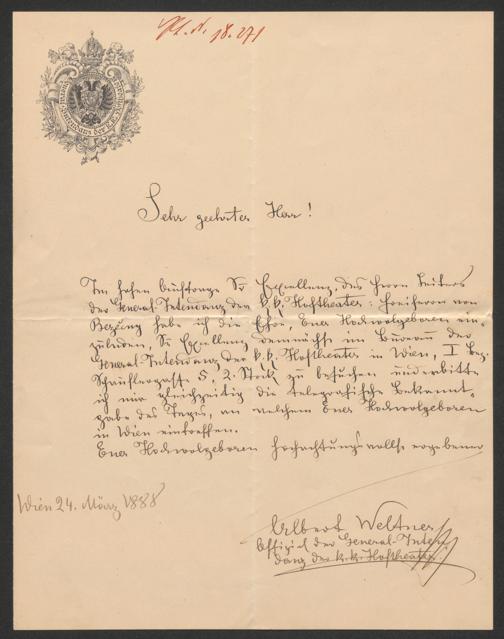 Ph. N. 18.271
General-Intendanz der k.k. Hoftheater
Sehr geehrter Herr!
Im hohen Auftrage Sr Excellenz, des Herrn Leiters
der General-Intendanz der k. k. Hoftheater: Freiherrn von
Bezecny habe ich die Ehre, Euer Hochwolgeboren ein-
zuladen, Sr Excellenz demnächst im Bureau der
General-Intendanz der k. k. Hoftheater in Wien, I Bez.
Schauflergasse 5, 2. Stock zu besuchen und erbitte
ich mir gleichzeitig die telegrafische Bekannt-
gabe des Tages, an welchem Euer Hochwolgeboren
in Wien eintreffen.
Euer Hochwolgeboren hochachtungsvollst ergebener
Wien 24. März 1888
Albert Weltner
Offizial der General-Inten
danz der k. k. Hoftheater.